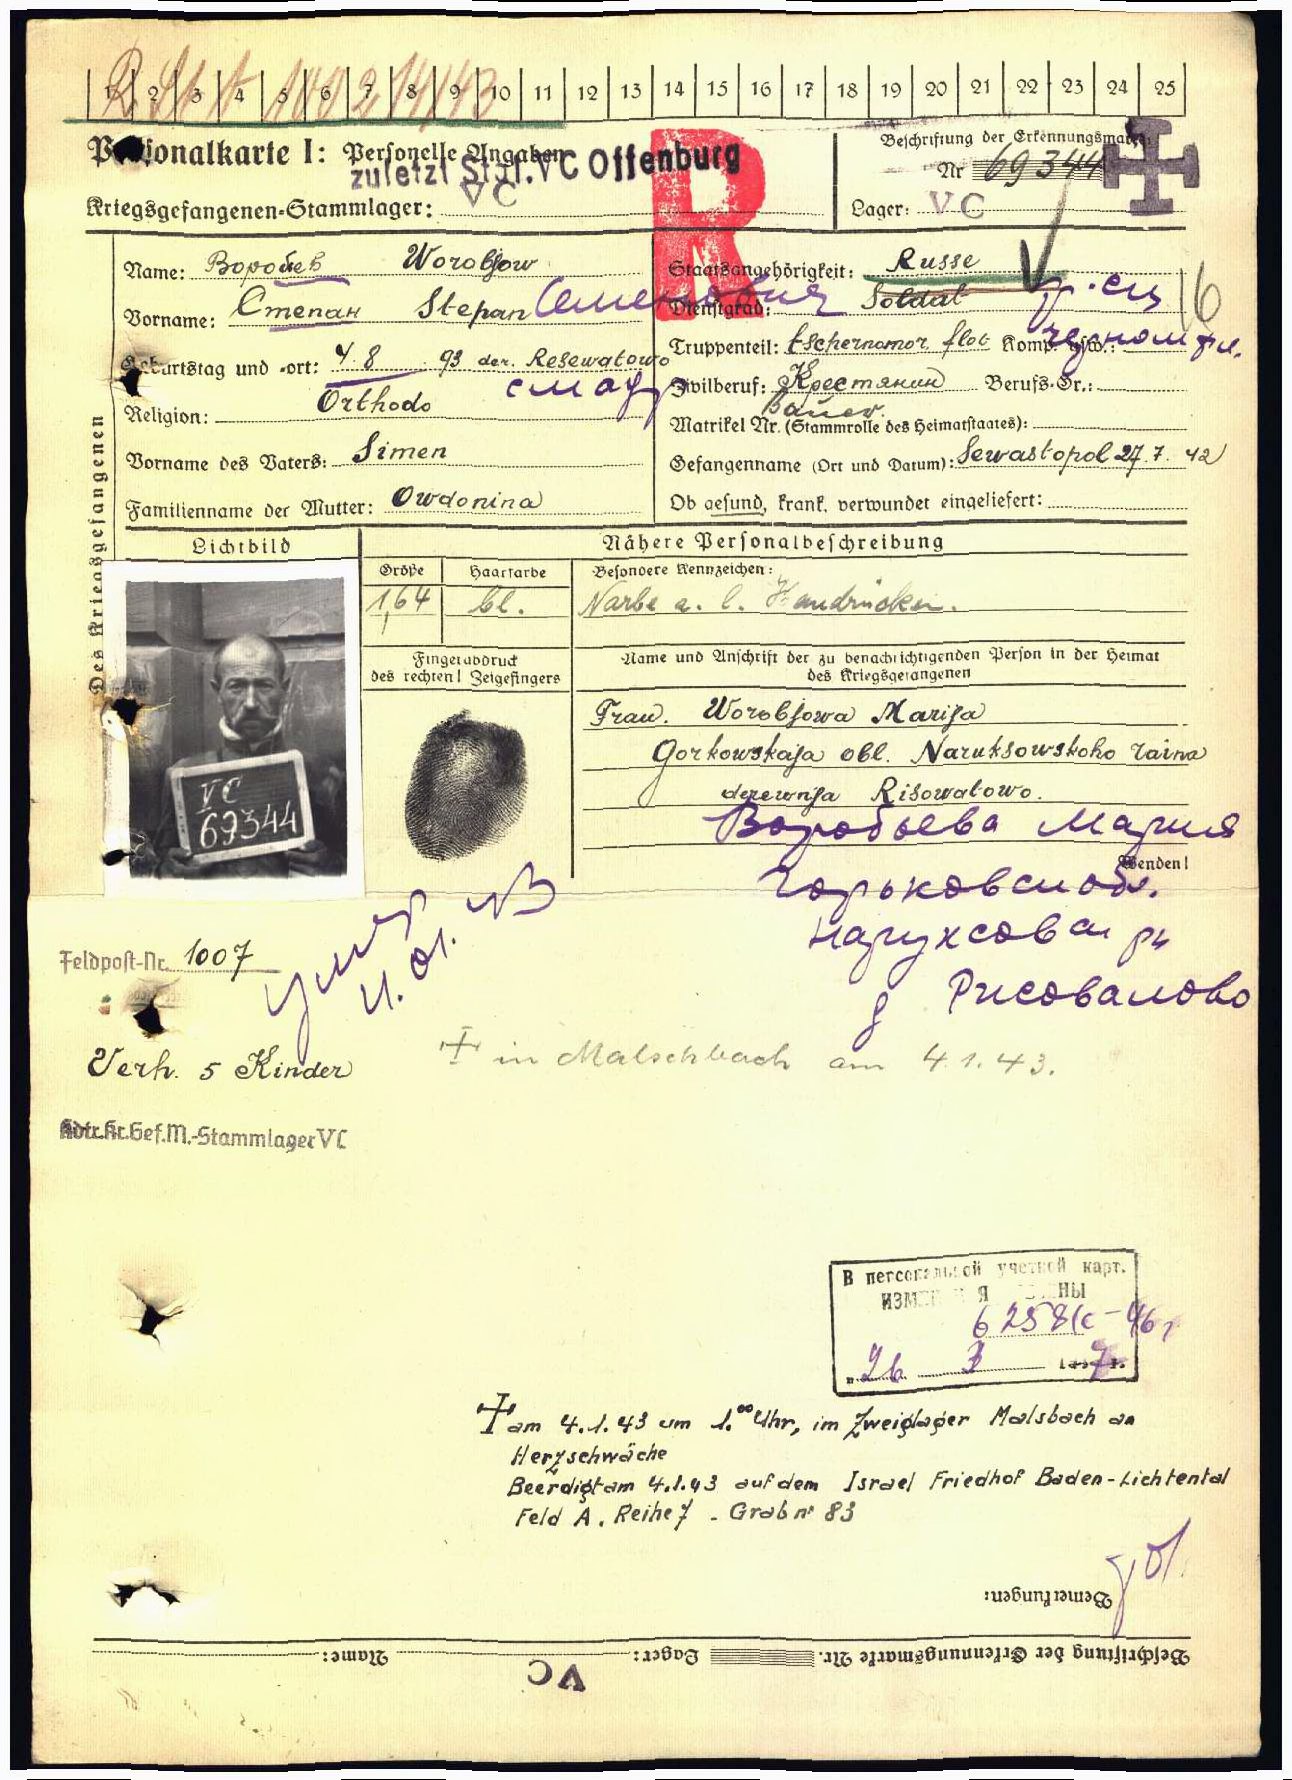 1 2 3 4 5 6 7 8 9 10 11 12 13 14 15 16 17 18 19 20 21 22 23 24 25
Personalkarte I: Personelle Angaben
zuletzt Stal. V C Offenburg
V C
Kriegsgefangenen-Stammlager:
R
Beschriftung der Erkennungsmarke
Nr 69344
Lager: V C
Des Kriegsgefangenen
Name: Воробев Worobjow
Vorname: Степан Stepan Семенович
Geburtstag und -ort: 4. 8 93 der. Resewatowo
Religion: Orthodo
Vorname des Vaters: Simen
Familienname der Mutter: Owdonina
Staatsangehörigkeit: Russe
16
Dienstgrad: Soldat
Truppenteil: tschernomor. flot Komp. usw.:
Zivilberuf: Крестянин Berufs-Gr.:
Bauer.
Matrikel Nr. (Stammrolle des Heimatstaates):
Gefangenname (Ort und Datum): Sewastopol 27.7. 42
Ob gesund, krank, verwundet eingeliefert:
Lichtbild
Nähere Personalbeschreibung
Größe Haarfarbe Besondere Kennzeichen:
1,64 bl. Narbe a. l. Handrücken.
Fingerabdruck
des rechten! Zeigefingers
Name und Anschrift der zu benachrichtigenden Person in der Heimat
des Kriegsgefangenen
VC
69344
Frau. Worobjowa Marija
Gorkowskaja obl. Naruksowskoho raina
derewnja Risowatowo.
Воробьева Мария
Wenden!
Горьковск обл.
Наруксова рн
д Рисовалово
умер
4.01.43
Feldpost-Nr. 1007
Verh. 5 Kinder
+ in Malschbach am 4.1.43.
Kdtr.Kr.Gef.M.-Stammlager V C
В персональной учетной карт.
26 3
+ am 4.1.43 um 1.00 Uhr, im Zweiglager Malsbach an
Herzschwäche
Beerdigt am 4.1.43 auf dem Israel Friedhof Baden-Lichtental
Feld A. Reihe 7 - Grab nr 83
Bemerkungen:
Beschriftung der Erkennungsmarke Nr. Lager: Name:
V C